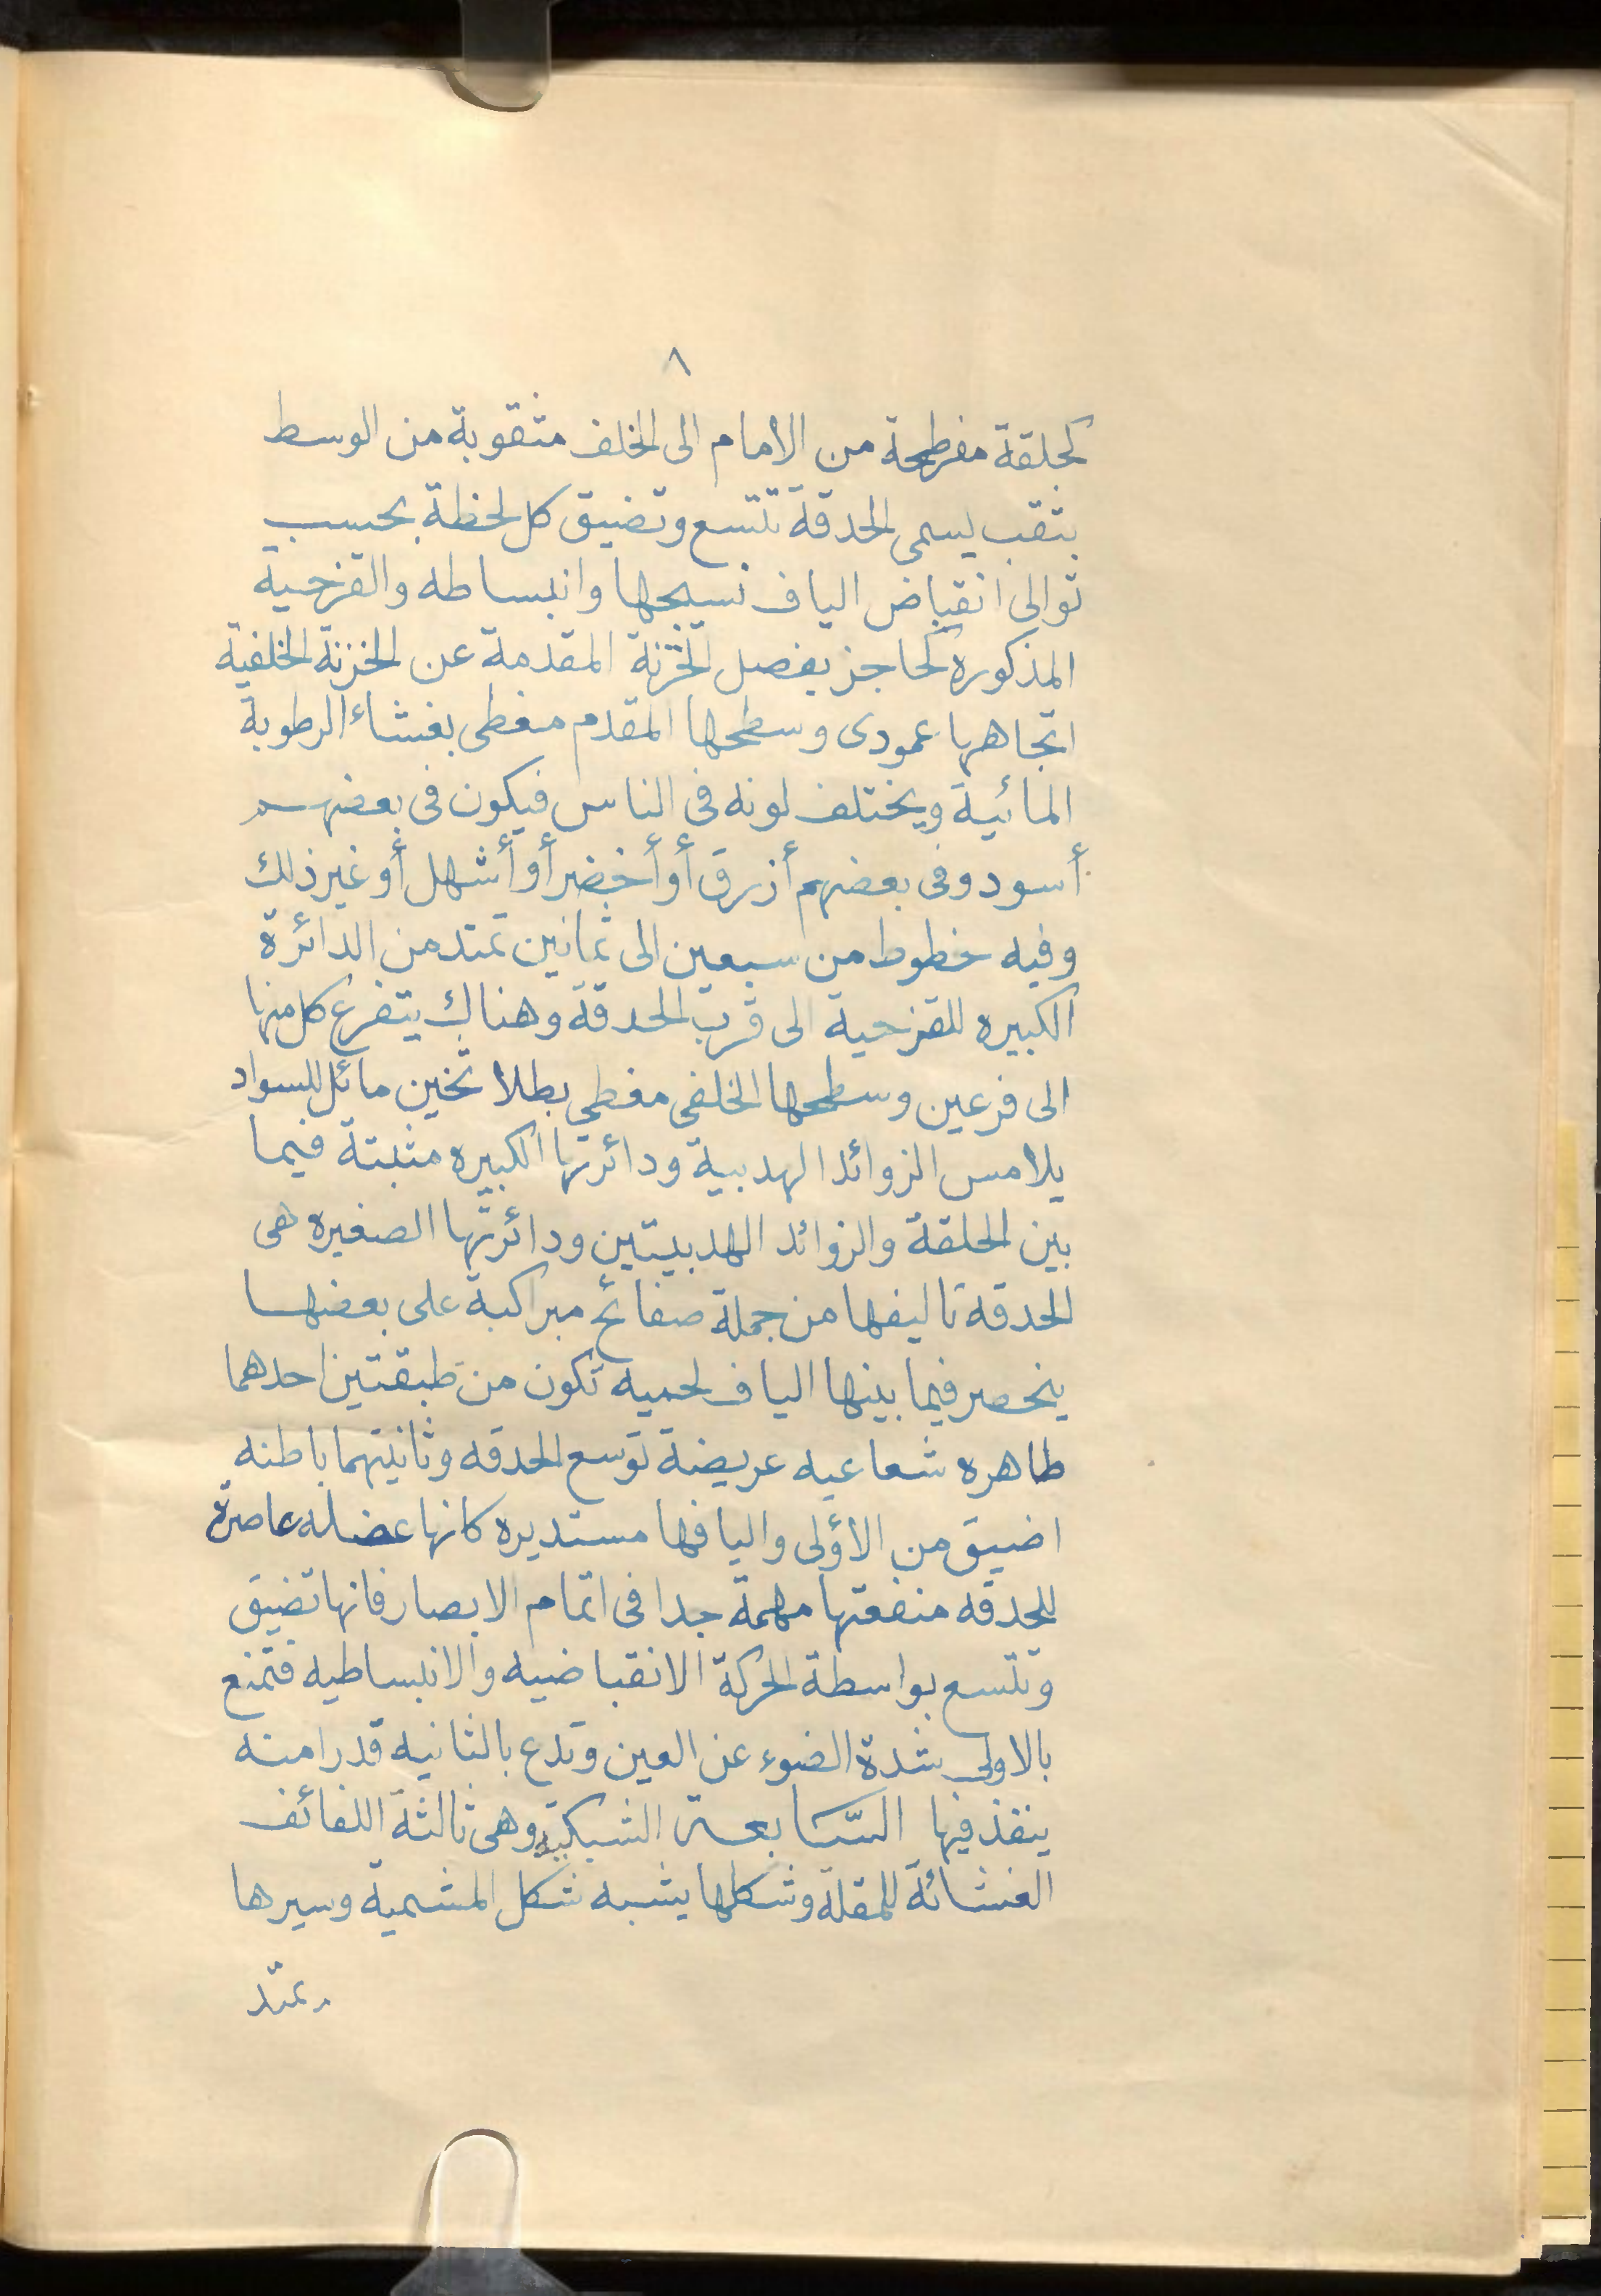 ٨
كحلقة مفرطحة من الامام الى الخلف مثقوبة من الوسط
بثقب يسمى الحدقة تتسع وتضيق كل لحظة بحسب
توالى انقباض الياف نسيجها وانبساطه والقزحية
المذكوره كحاجز يفصل الخزنة المقدمة عن الخزنة الخلفية
اتجاهها عمودى وسطحها المقدم مغطى بغشاء الرطوبة
المائية ويختلف لونه فى الناس فيكون فى بعضهم
أسود وفى بعضهم أزرق أو أخضر أو أشهل أو غير ذلك
وفيه خطوط من سبعين الى ثمانين تمتد من الدائرة
الكبيره للقزحية الى قرب الحدقة وهناك يتفرع كل منها
الى فرعين وسطحها الخلفى مغطى بطلا ثخين مائل للسواد
يلامس الزوائد الهدبية ودائرتها الكبيره مثبتة فيما
بين الحلقة والزوائد الهدبيتين ودائرتها الصغيره هى
الحدقه تاليفها من جملة صفائح متراكبة على بعضها
ينحصر فيما بينها الياف لحميه تكون من طبقتين احدهما
طاهره شعاعيه عريضة توسع الحدقه وثانيتهما باطنه
اضيق من الأولى واليافها مستديره كانها عضله عاصرة
للحدقه منفعتها مهمة جدا فى اتمام الابصار فانها تضيق
وتتسع بواسطة الحركة الانقباضيه والانبساطيه فتمنع
بالاولى شدة الضوء عن العين وتدع بالثانيه قدرا منه
ينفذ فيها السّابعة الشبكيّة وهى ثالثة اللفائف
الغشائة للمقلة وشكلها يشبه شكل المشمية وسيرها
يمتد